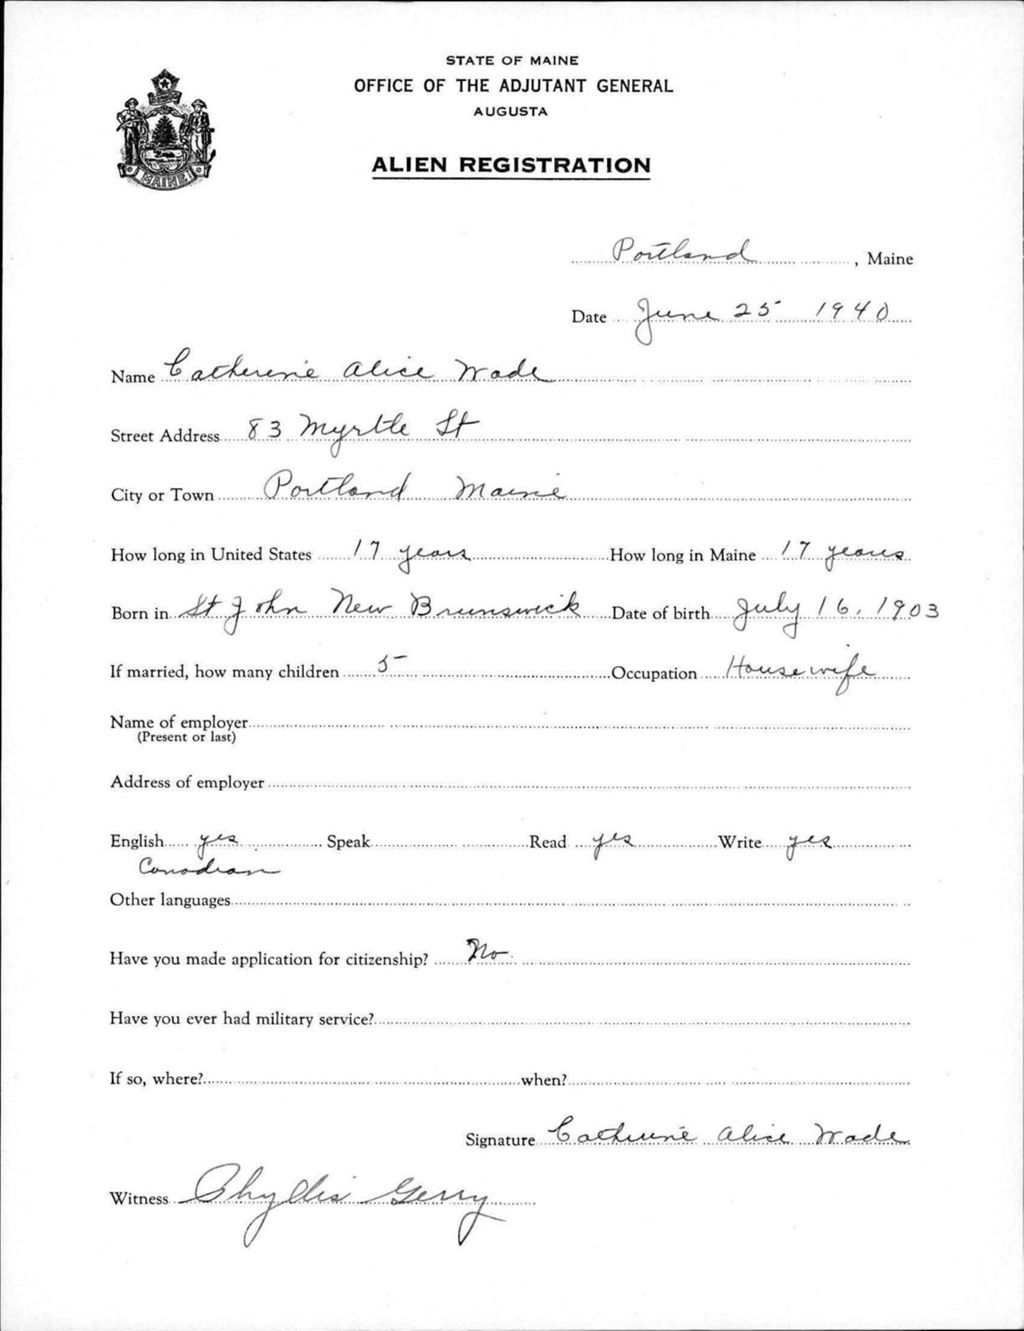 STATE OF MAINE
OFFICE OF THE ADJUTANT GENERAL
AUGUSTA
ALIEN REGISTRATION
MAINE
Portland, Maine
Date June 25 1940
Name Catherine Alice Wade
Street Address 83 Myrtle St
City or Town Portland Maine
How long in United States 17 years How long in Maine 17 years
Born in St John New Brunswick Date of birth July 16, 1903
If married, how many children 5 Occupation Housewife
Name of employer
(Present or last)
Address of employer
English yes Speak Read yes Write yes
Canadian
Other languages
Have you made application for citizenship? No
Have you ever had military service?
If so, where? when?
Signature Catherine Alice Wade
Witness Phyllis Gerry